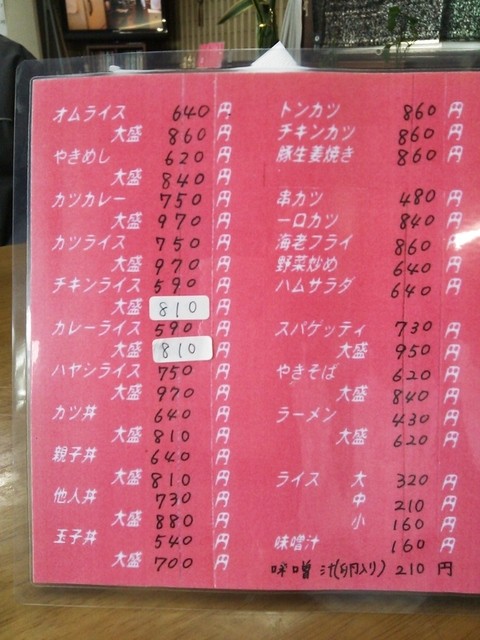 オムライス 640 円
大盛 860 円
やきめし 620 円
大盛 840 円
カツカレー 750 円
大盛 970 円
カツライス 750 円
大盛 970 円
チキンライス 590 円
大盛 810 円
カレーライス 590 円
大盛 810 円
ハヤシライス 750 円
大盛 970 円
カツ丼 640 円
大盛 810 円
親子丼 640 円
大盛 810 円
他人丼 730 円
大盛 880 円
玉子丼 540 円
大盛 700 円
トンカツ 860 円
チキンカツ 860 円
豚生姜焼き 860 円
串カツ 480 円
一口カツ 840 円
海老フライ 860 円
野菜炒め 640 円
ハムサラダ 640 円
スパゲッティ 730 円
大盛 950 円
やきそば 620 円
大盛 840 円
ラーメン 430 円
大盛 620 円
ライス 大 320 円
中 210 円
小 160 円
味噌汁 160 円
味噌汁(卵入り) 210 円